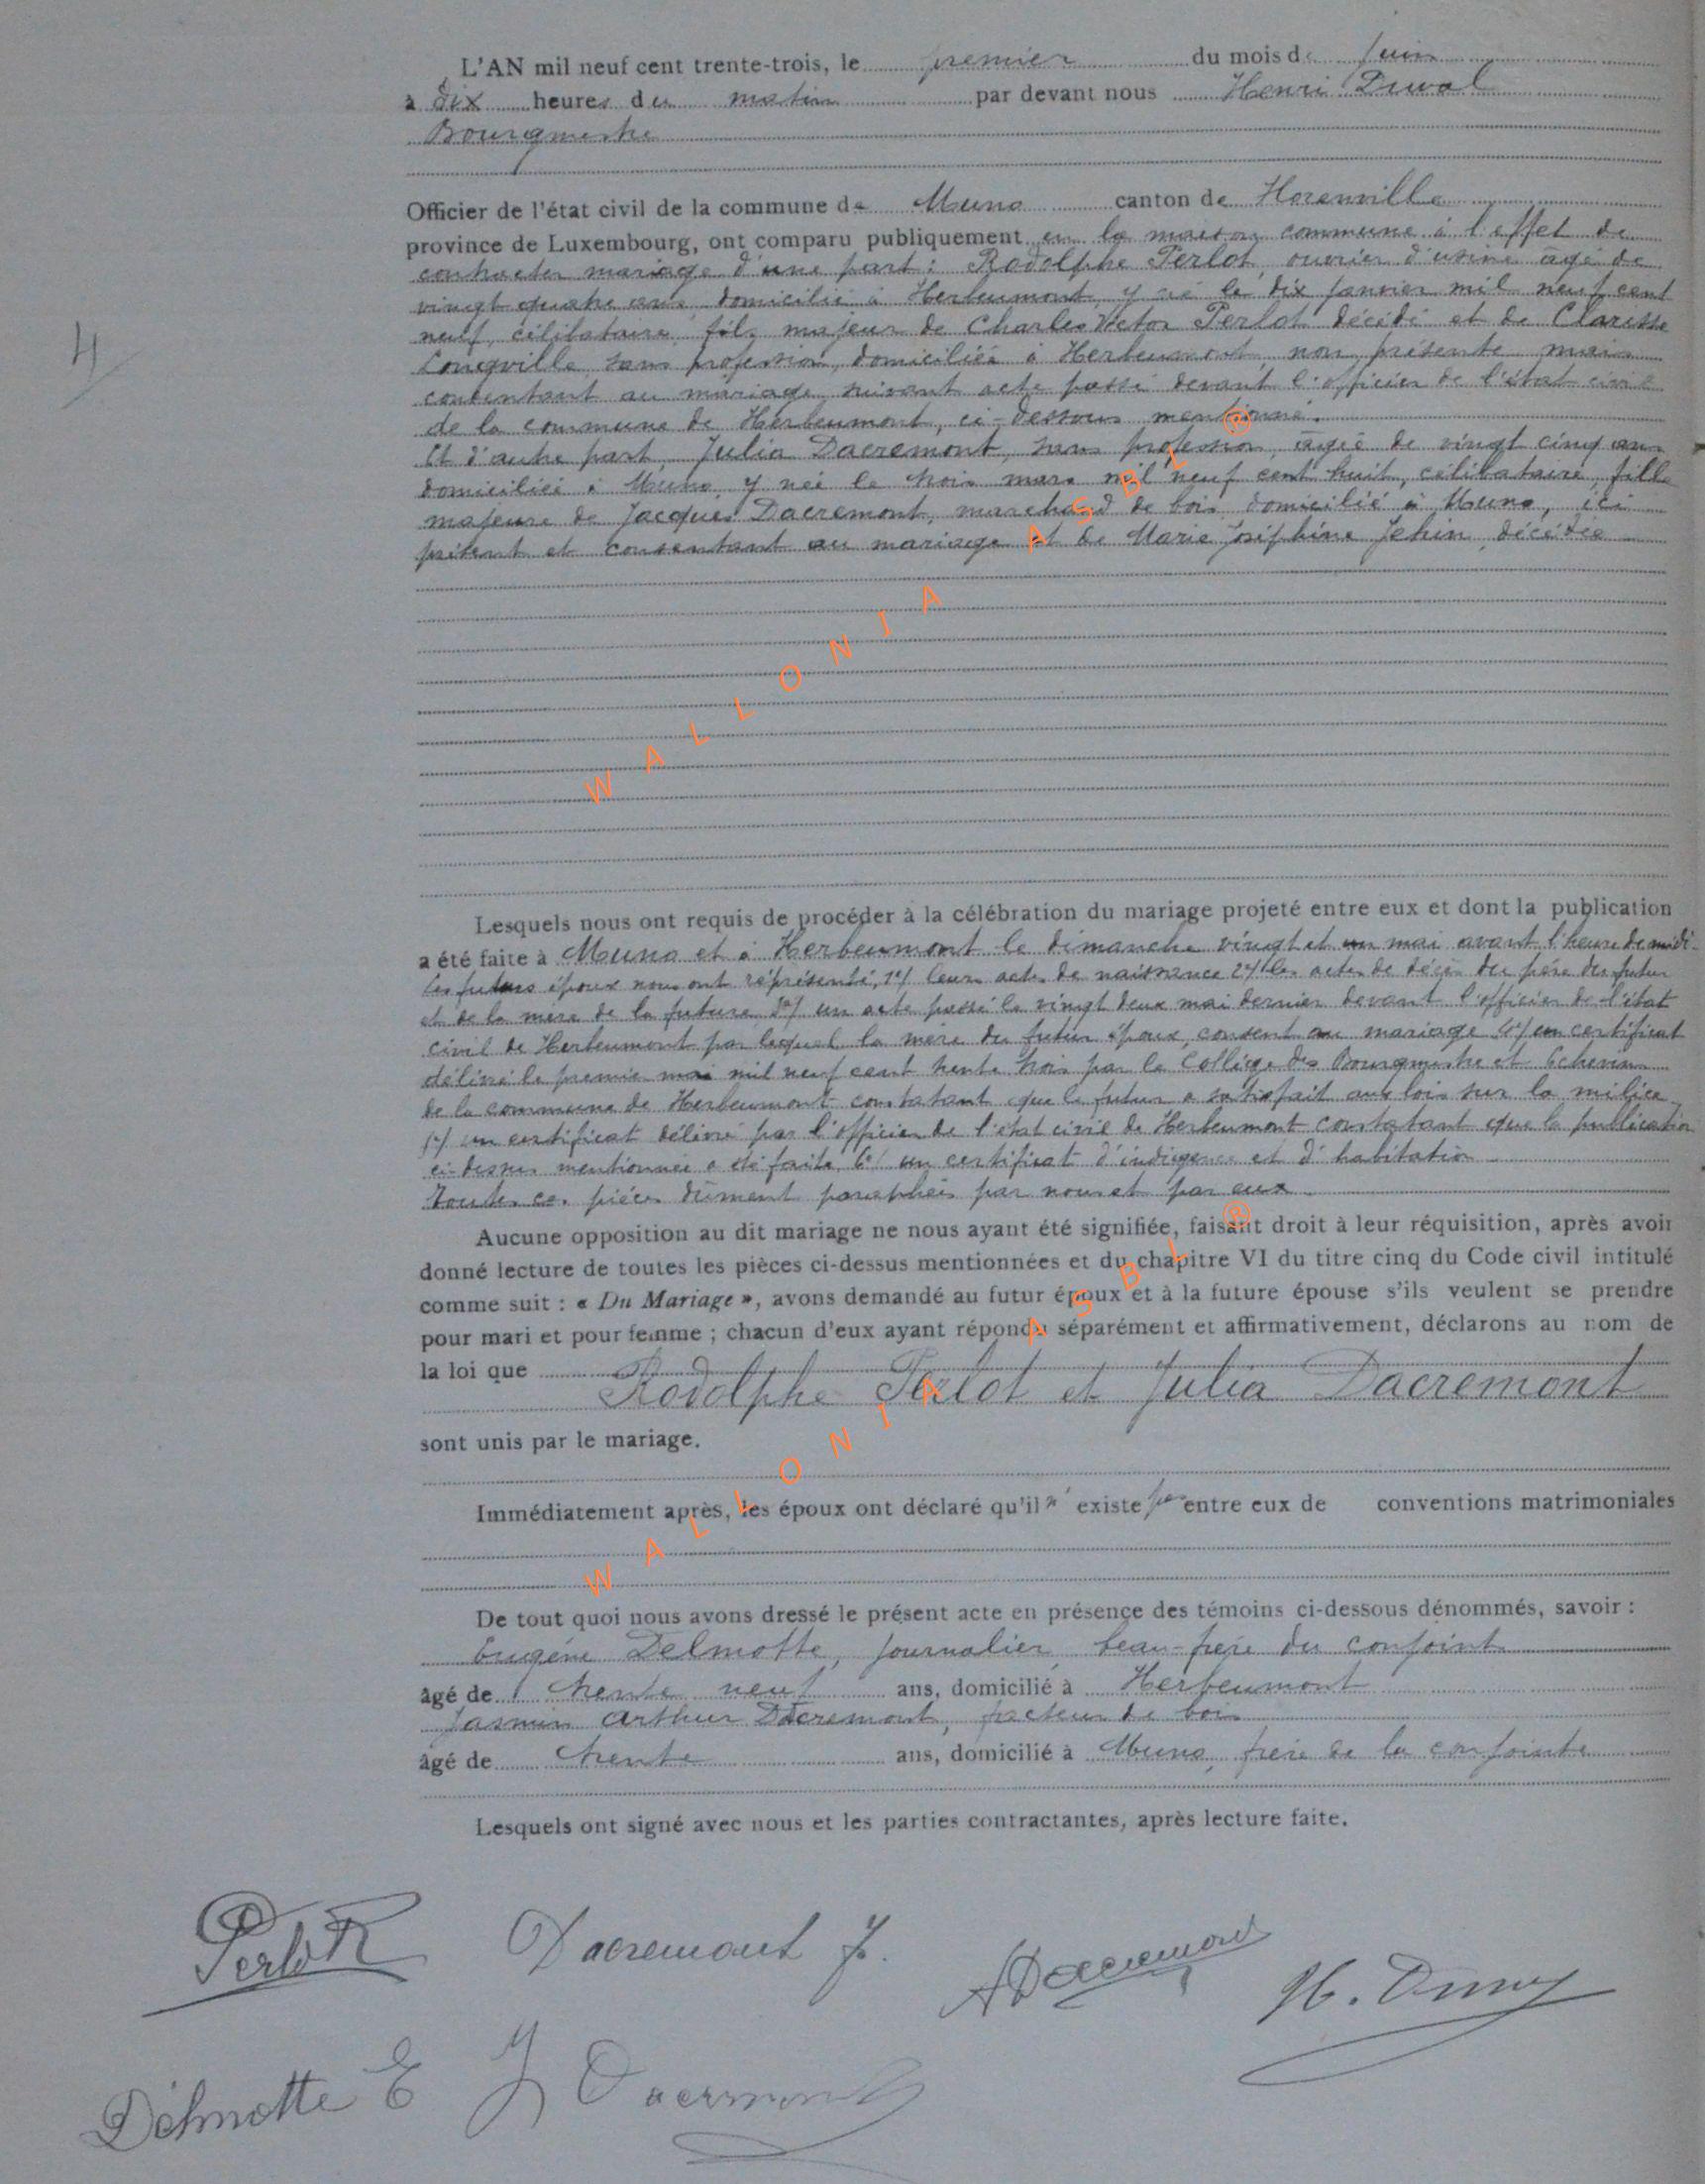 L'AN mil neuf cent trente-trois, le premier du mois de juin
à dix heures du matin par devant nous Henri Duval
Bourgmestre
Officier de l'état civil de la commune de Muno canton de Florenville
province de Luxembourg, ont comparu publiquement en la maison commune à l'effet de
contracter mariage d'une part : Rodolphe Perlot, ouvrier d'usine âgé de
4
vingt quatre ans domicilié à Herbeumont, y né le dix janvier mil neuf cent
neuf, célibataire, fils majeur de Charles Victor Perlot décédé et de Clarisse
Longville sans profession, domiciliée à Herbeumont, non présente mais
consentant au mariage suivant acte passé devant l'officier de l'état civil
de la commune de Herbeumont, ci-dessous mentionné.
Et d'autre part, Julia Dacremont, sans profession, âgée de vingt cinq ans
domiciliée à Muno, y née le trois mars mil neuf cent huit, célibataire, fille
majeure de Jacques Dacremont, marchand de bois domicilié à Muno, ici
présent et consentant au mariage et de Marie Joséphine Jehin, décédée
WALLONIA ASBL ®
Lesquels nous ont requis de procéder à la célébration du mariage projeté entre eux et dont la publication
a été faite à Muno et à Herbeumont le dimanche vingt et un mai avant l'heure de midi.
Les futurs époux nous ont représenté, 1°/ leurs actes de naissance 2°/ les actes de décès du père du futur
et de la mère de la future 3°/ un acte passé le vingt deux mai dernier devant l'officier de l'état
civil de Herbeumont par lequel la mère du futur époux, consent au mariage 4°/ un certificat
délivré le premier mai mil neuf cent trente trois par le Collège des Bourgmestre et Echevins
de la commune de Herbeumont constatant que le futur a satisfait aux lois sur la milice
5°/ un certificat délivré par l'officier de l'état civil de Herbeumont constatant que la publication
ci-dessus mentionnée a été faite, 6°/ un certificat d'indigence et d'habitation
Toutes ces pièces dûment paraphées par nous et par eux.
Aucune opposition au dit mariage ne nous ayant été signifiée, faisant droit à leur réquisition, après avoir
donné lecture de toutes les pièces ci-dessus mentionnées et du chapitre VI du titre cinq du Code civil intitulé
comme suit : « Du Mariage », avons demandé au futur époux et à la future épouse s'ils veulent se prendre
pour mari et pour femme ; chacun d'eux ayant répondu séparément et affirmativement, déclarons au nom de
la loi que
Rodolphe Perlot et Julia Dacremont
sont unis par le mariage.
WALLONIA ASBL ®
Immédiatement après, les époux ont déclaré qu'il n' existe pas entre eux de conventions matrimoniales
De tout quoi nous avons dressé le présent acte en présence des témoins ci-dessous dénommés, savoir :
Eugène Delmotte, journalier, beau-frère du conjoint
âgé de trente neuf ans, domicilié à Herbeumont
Jasmin Arthur Dacremont, facteur de bois
âgé de trente ans, domicilié à Muno, frère de la conjointe
Lesquels ont signé avec nous et les parties contractantes, après lecture faite.
Perlot R
Dacremont J.
A Dacremont
H. Duval
Delmotte E
J Dacremont